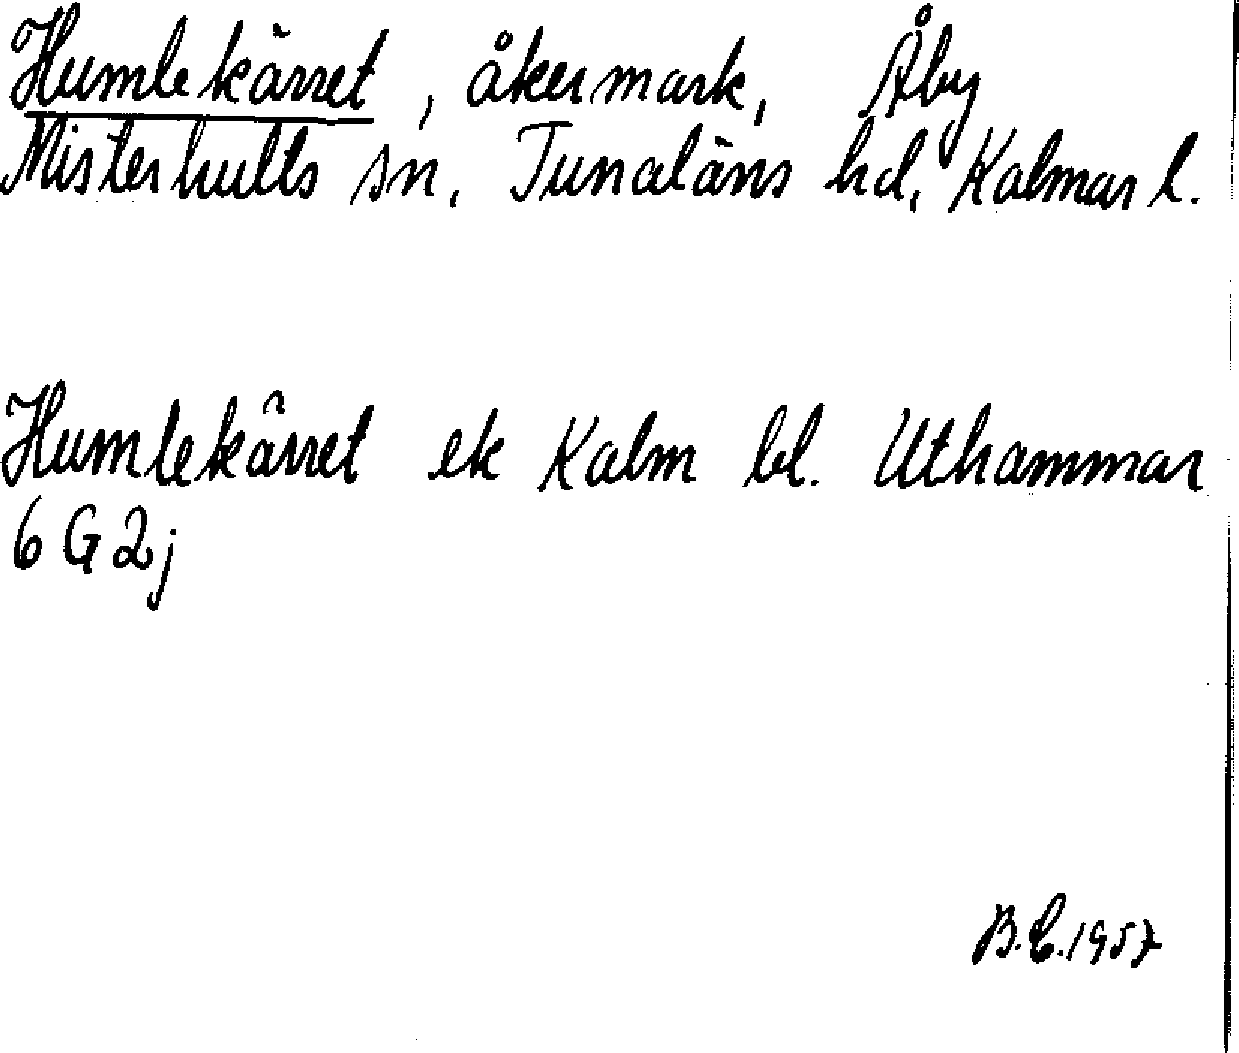 Humlekärret, åkermark, Åby
Misterhults sn, Tunaläns hd, Kalmar l.
Humlekärret ek Kalm bl. Uthammar
6 G 2j
B.E. 1957